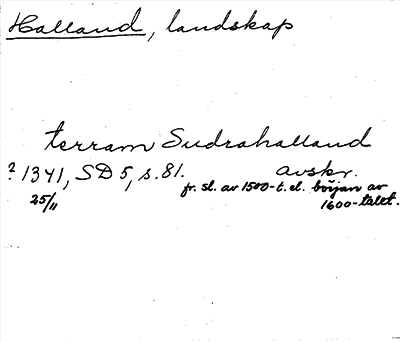 Halland, landskap
terram Sudrahalland
? 1341, SD 5, s. 81. avskr.
25/11 fr. sl. av 1500-t. el. början av
1600-talet.